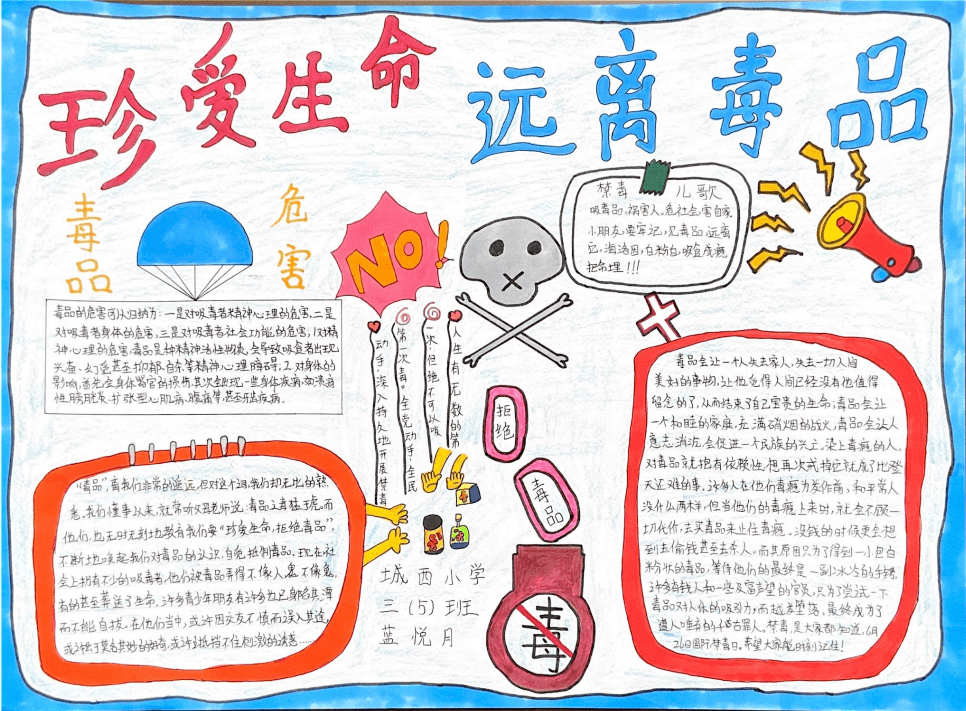 珍爱生命
远离毒品
毒品
危害
NO!
禁毒 儿歌
吸毒品,祸害人,危社会,害自家
小朋友,要牢记,见毒品,远离
它,海洛因,白粉白,吸食成瘾
把命埋!!!
毒品的危害可从归纳为:一是对吸毒者精神心理的危害,二是
对吸毒者身体的危害,三是对吸毒者社会功能的危害,1对精
神心理的危害,毒品是种精神活性物质,会导致吸食者出现
兴奋、幻觉甚至抑郁、自杀等精神心理障碍,2.对身体的
影响,首先会身体器官的损伤,其次会出现一些身体疾病,如溃疡
性膀胱炎、扩张型心肌病、腹痛等,甚至牙齿疾病。
人生有无数的第
一次,但绝不可以吸
第一次毒。全党动手,全民
动手,深入持久地开展禁毒
拒绝
毒品
"毒品",离我们非常的遥远,但对这个词,我们却无比的熟
悉,我们懂事以来,就常听父母老师说:毒品之毒猛于虎。而
他们,也无时无刻地教育我们要"珍爱生命,拒绝毒品",
不断地唤起我们对毒品的认识,自觉抵制毒品。现在社
会上拥有不少的吸毒者,他们被毒品弄得不像人,鬼不像鬼,
有的甚至葬送了生命。许多青少年朋友有许多也已身陷其泽
而不能自拔。在他们当中,或许因交友不慎而误入其途,
或许出于莫名其妙的好奇,或许抵挡不住刺激的诱惑……
城西小学
三(5)班
蓝悦月
毒
毒品会让一个人失去家人,失去一切人间
美好的事物,让他觉得人间已经没有他值得
留念的了,从而结束了自己宝贵的生命,毒品会让
一个和睦的家庭,充满硝烟的战火,毒品会让人
意志消沉,会促进一个民族的兴亡。染上毒瘾的人,
对毒品就抱有依赖性,想再次戒掉它就成了比登
天还难的事。许多人在他们毒瘾为发作前,和平常人
没什么两样,但当他们的毒瘾上来时,就会不顾一
切代价,去买毒品来止住毒瘾。没钱的时候更会想
到去偷钱甚至去杀人。而其原因只为了得到一小包白
粉状的毒品,等待他们的最终是一副冰冷的手铐,
许多有钱人和一些及富声望的官员,只为了尝试一下
毒品对人体的吸引力,而越发堕落,最终成为了
遭人唾弃的千古罪人。禁毒,是大家都知道,6月
26日国际禁毒日。希望大家能时刻记住!